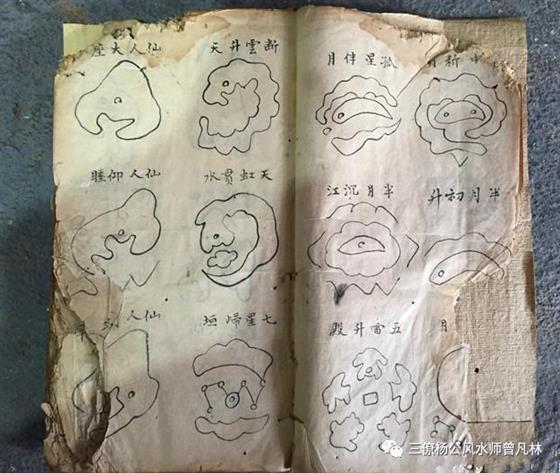 孤星伴月
半月初升
半月沉江
月
五雷升殿
断雲升天
仙人大座
天虹貫水
仙人仰睡
七星歸垣
仙人
三僚杨公风水师曾凡林